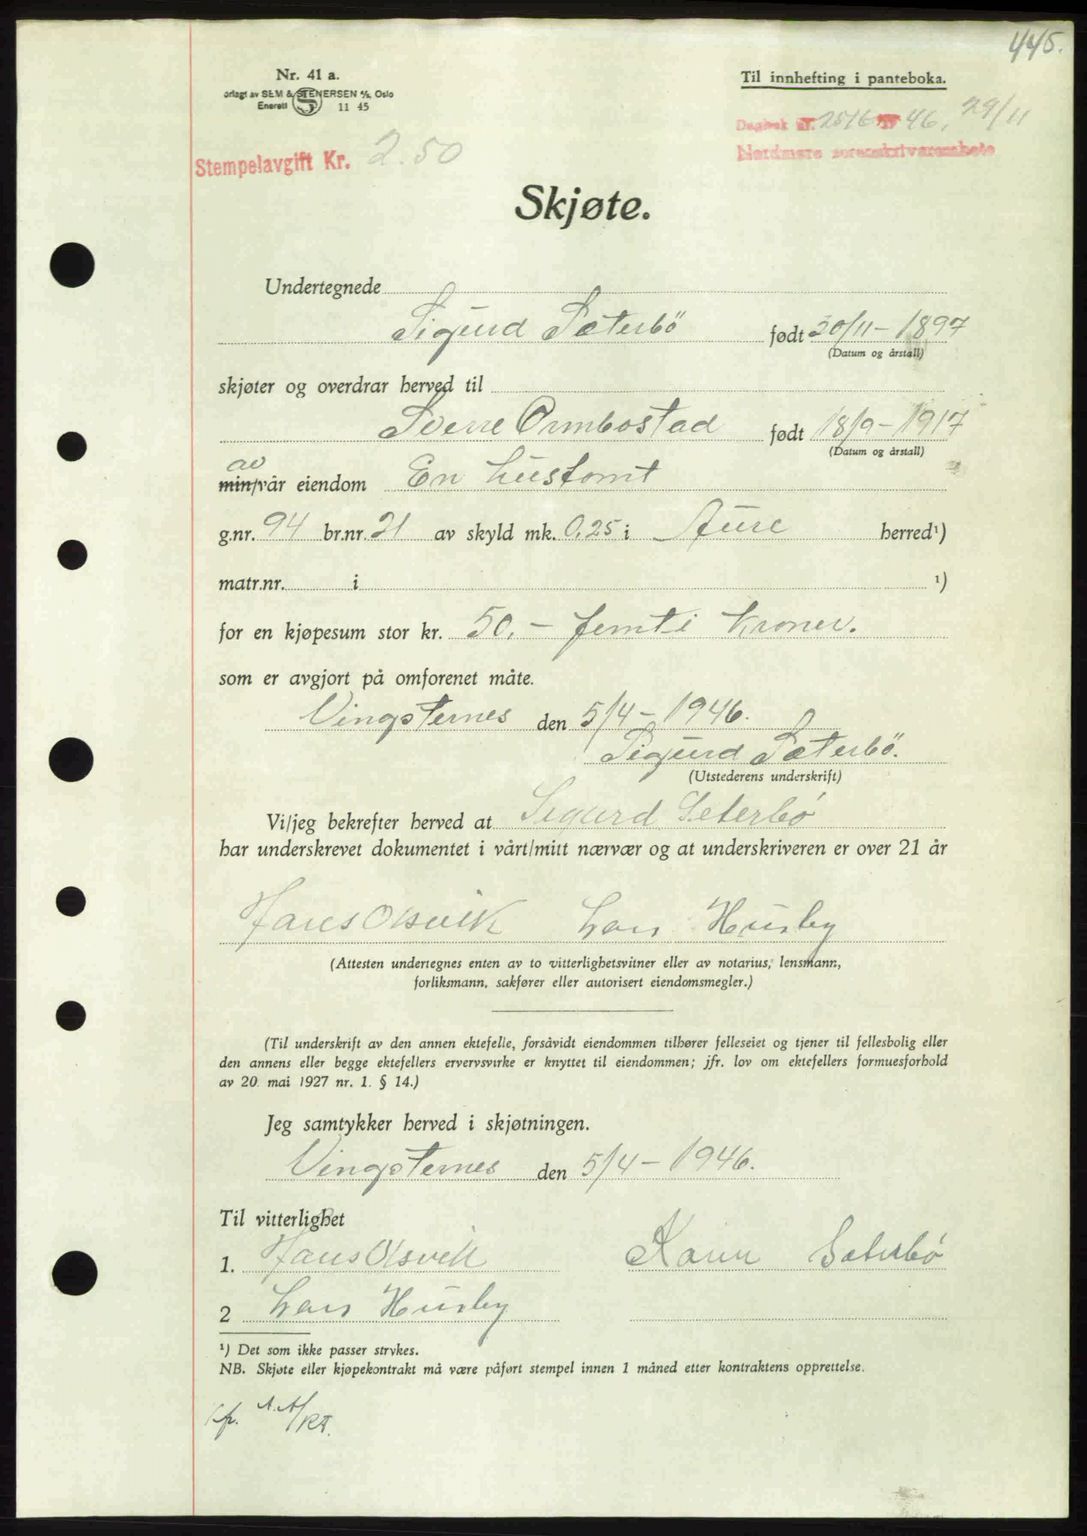 445.
Nr. 41 a.
orlagt av SEM & STENERSEN A/S, Oslo
Enerett S 11 45
Til innhefting i panteboka.
Dagbok nr. 2516 46, 29/11
Nordmøre sorenskriverembete
Stempelavgift Kr. 2.50
Skjøte.
Undertegnede
Sigurd Sæterbö født 20/11-1897
(Datum og årstall)
skjøter og overdrar herved til
Sverre Ormbostad født 18/9-1917
(Datum og årstall)
av
min/vår eiendom En hustomt
g.nr. 94 br.nr. 21 av skyld mk. 0,25 i Aure herred¹)
matr.nr. i ¹)
for en kjøpesum stor kr. 50,- femti kroner.
som er avgjort på omforenet måte.
Vingsternes den 5/4-1946.
Sigurd Sæterbö.
(Utstederens underskrift)
Vi/jeg bekrefter herved at Sigurd Seterbø
har underskrevet dokumentet i vårt/mitt nærvær og at underskriveren er over 21 år
Hans Olsvik Lars Husby
(Attesten undertegnes enten av to vitterlighetsvitner eller av notarius, lensmann,
forliksmann, sakfører eller autorisert eiendomsmegler.)
(Til underskrift av den annen ektefelle, forsåvidt eiendommen tilhører felleseiet og tjener til fellesbolig eller
den annens eller begge ektefellers ervervsvirke er knyttet til eiendommen; jfr. lov om ektefellers formuesforhold
av 20. mai 1927 nr. 1. § 14.)
Jeg samtykker herved i skjøtningen.
Vingsternes den 5/4-1946.
Til vitterlighet
1. Hans Olsvik Karen Sæterbø
2 Lars Husby
¹) Det som ikke passer strykes.
NB. Skjøte eller kjøpekontrakt må være påført stempel innen 1 måned etter kontraktens opprettelse.